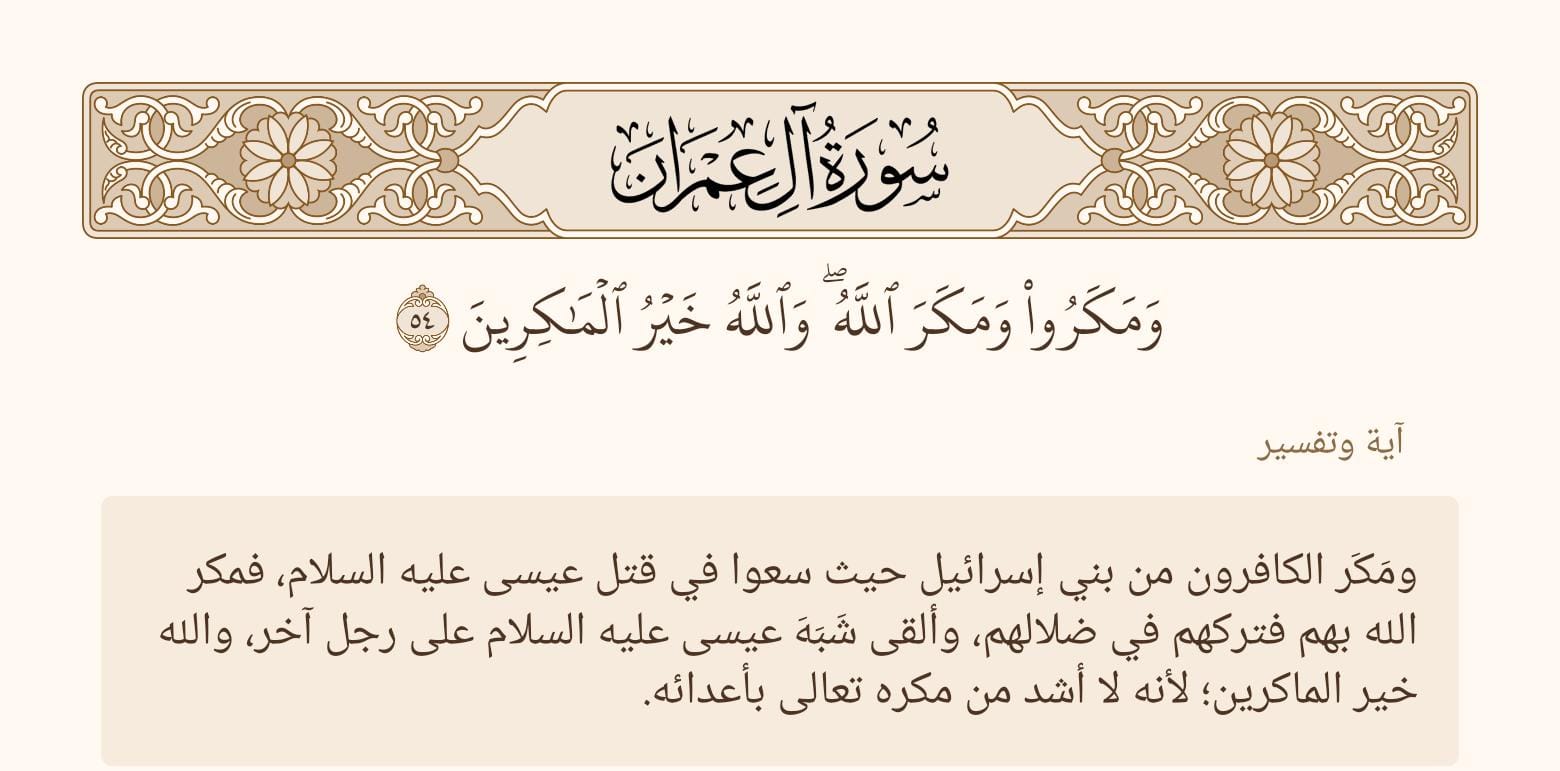 سُورَةُ آلِ عِمْرَانَ
وَمَكَرُوا۟ وَمَكَرَ ٱللَّهُۖ وَٱللَّهُ خَيْرُ ٱلْمَـٰكِرِينَ ٥٤
آية وتفسير
ومَكَر الكافرون من بني إسرائيل حيث سعوا في قتل عيسى عليه السلام، فمكر
الله بهم فتركهم في ضلالهم، وألقى شَبَهَ عيسى عليه السلام على رجل آخر، والله
خير الماكرين؛ لأنه لا أشد من مكره تعالى بأعدائه.